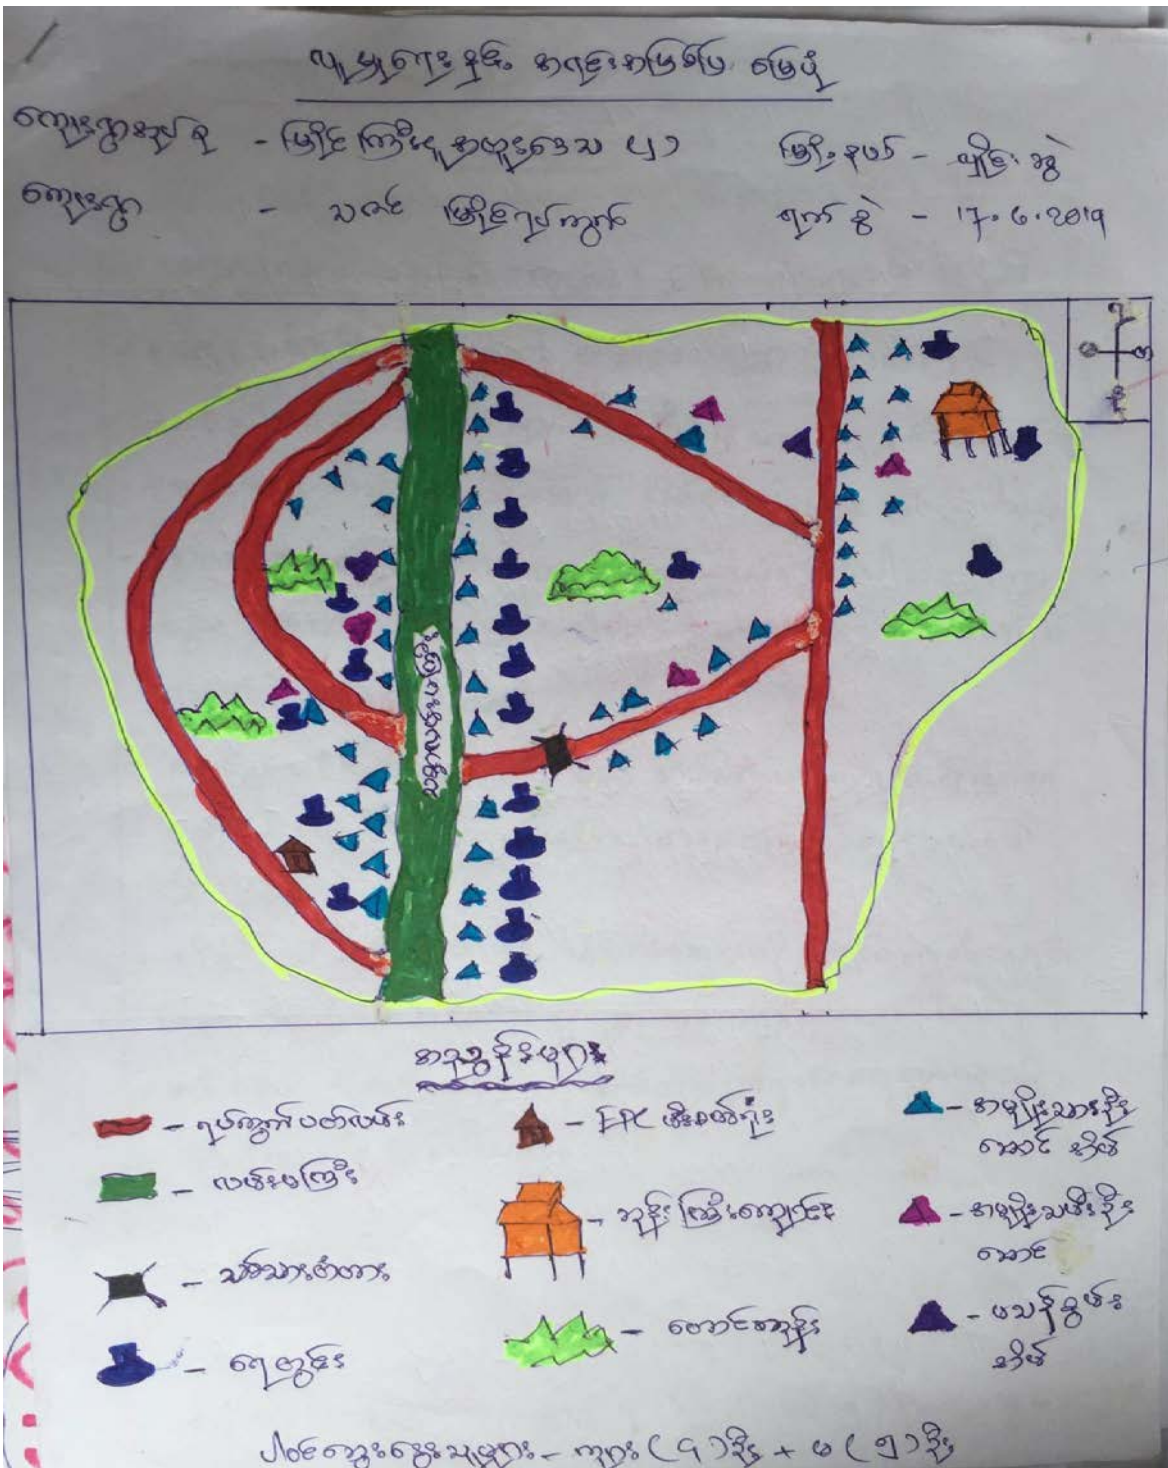 လူမှုရေးနှင့် အရင်းအမြစ်ပြ မြေပုံ
ကျေးရွာအုပ်စု - မြိုင်ကြီးငူအထူးဒေသ မြို့နယ် - လှိုင်းဘွဲ
ကျေးရွာ - သဇင် မြိုင်ရပ်ကွက် ရက်စွဲ - 17.6.2019
အညွှန်းများ
- ရပ်ကွက်ပတ်လမ်း
- လမ်းမကြီး
- သစ်သားတံတား
- ရေတွင်း
- EPC မီးစက်ရုံး
- ဘုန်းကြီးကျောင်း
- တောင်ကုန်း
- အမျိုးသားဦးဆောင်အိမ်
- အမျိုးသမီးဦးဆောင်
- မသန်စွမ်းအိမ်
ပါဝင်ဆွေးနွေးသူများ - ကျား (၄) ဦး + မ (၅) ဦး